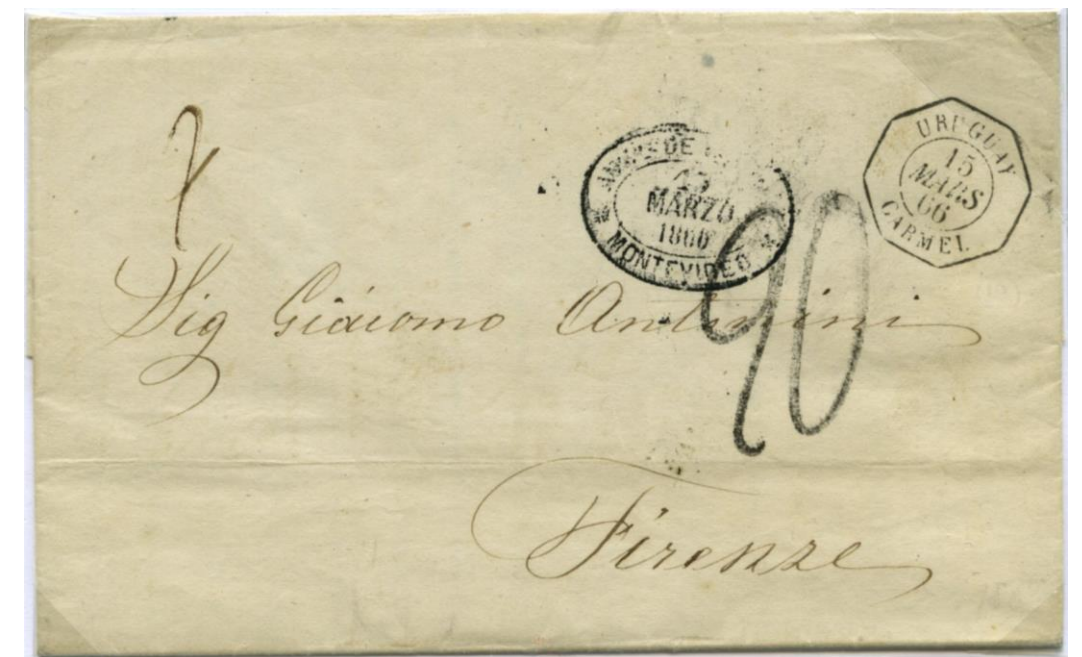 DE
MARZO
1866
MONTEVIDEO
URUGUAY
15
MARS
66
CARMEL
90
Sig Giácomo
Firenze